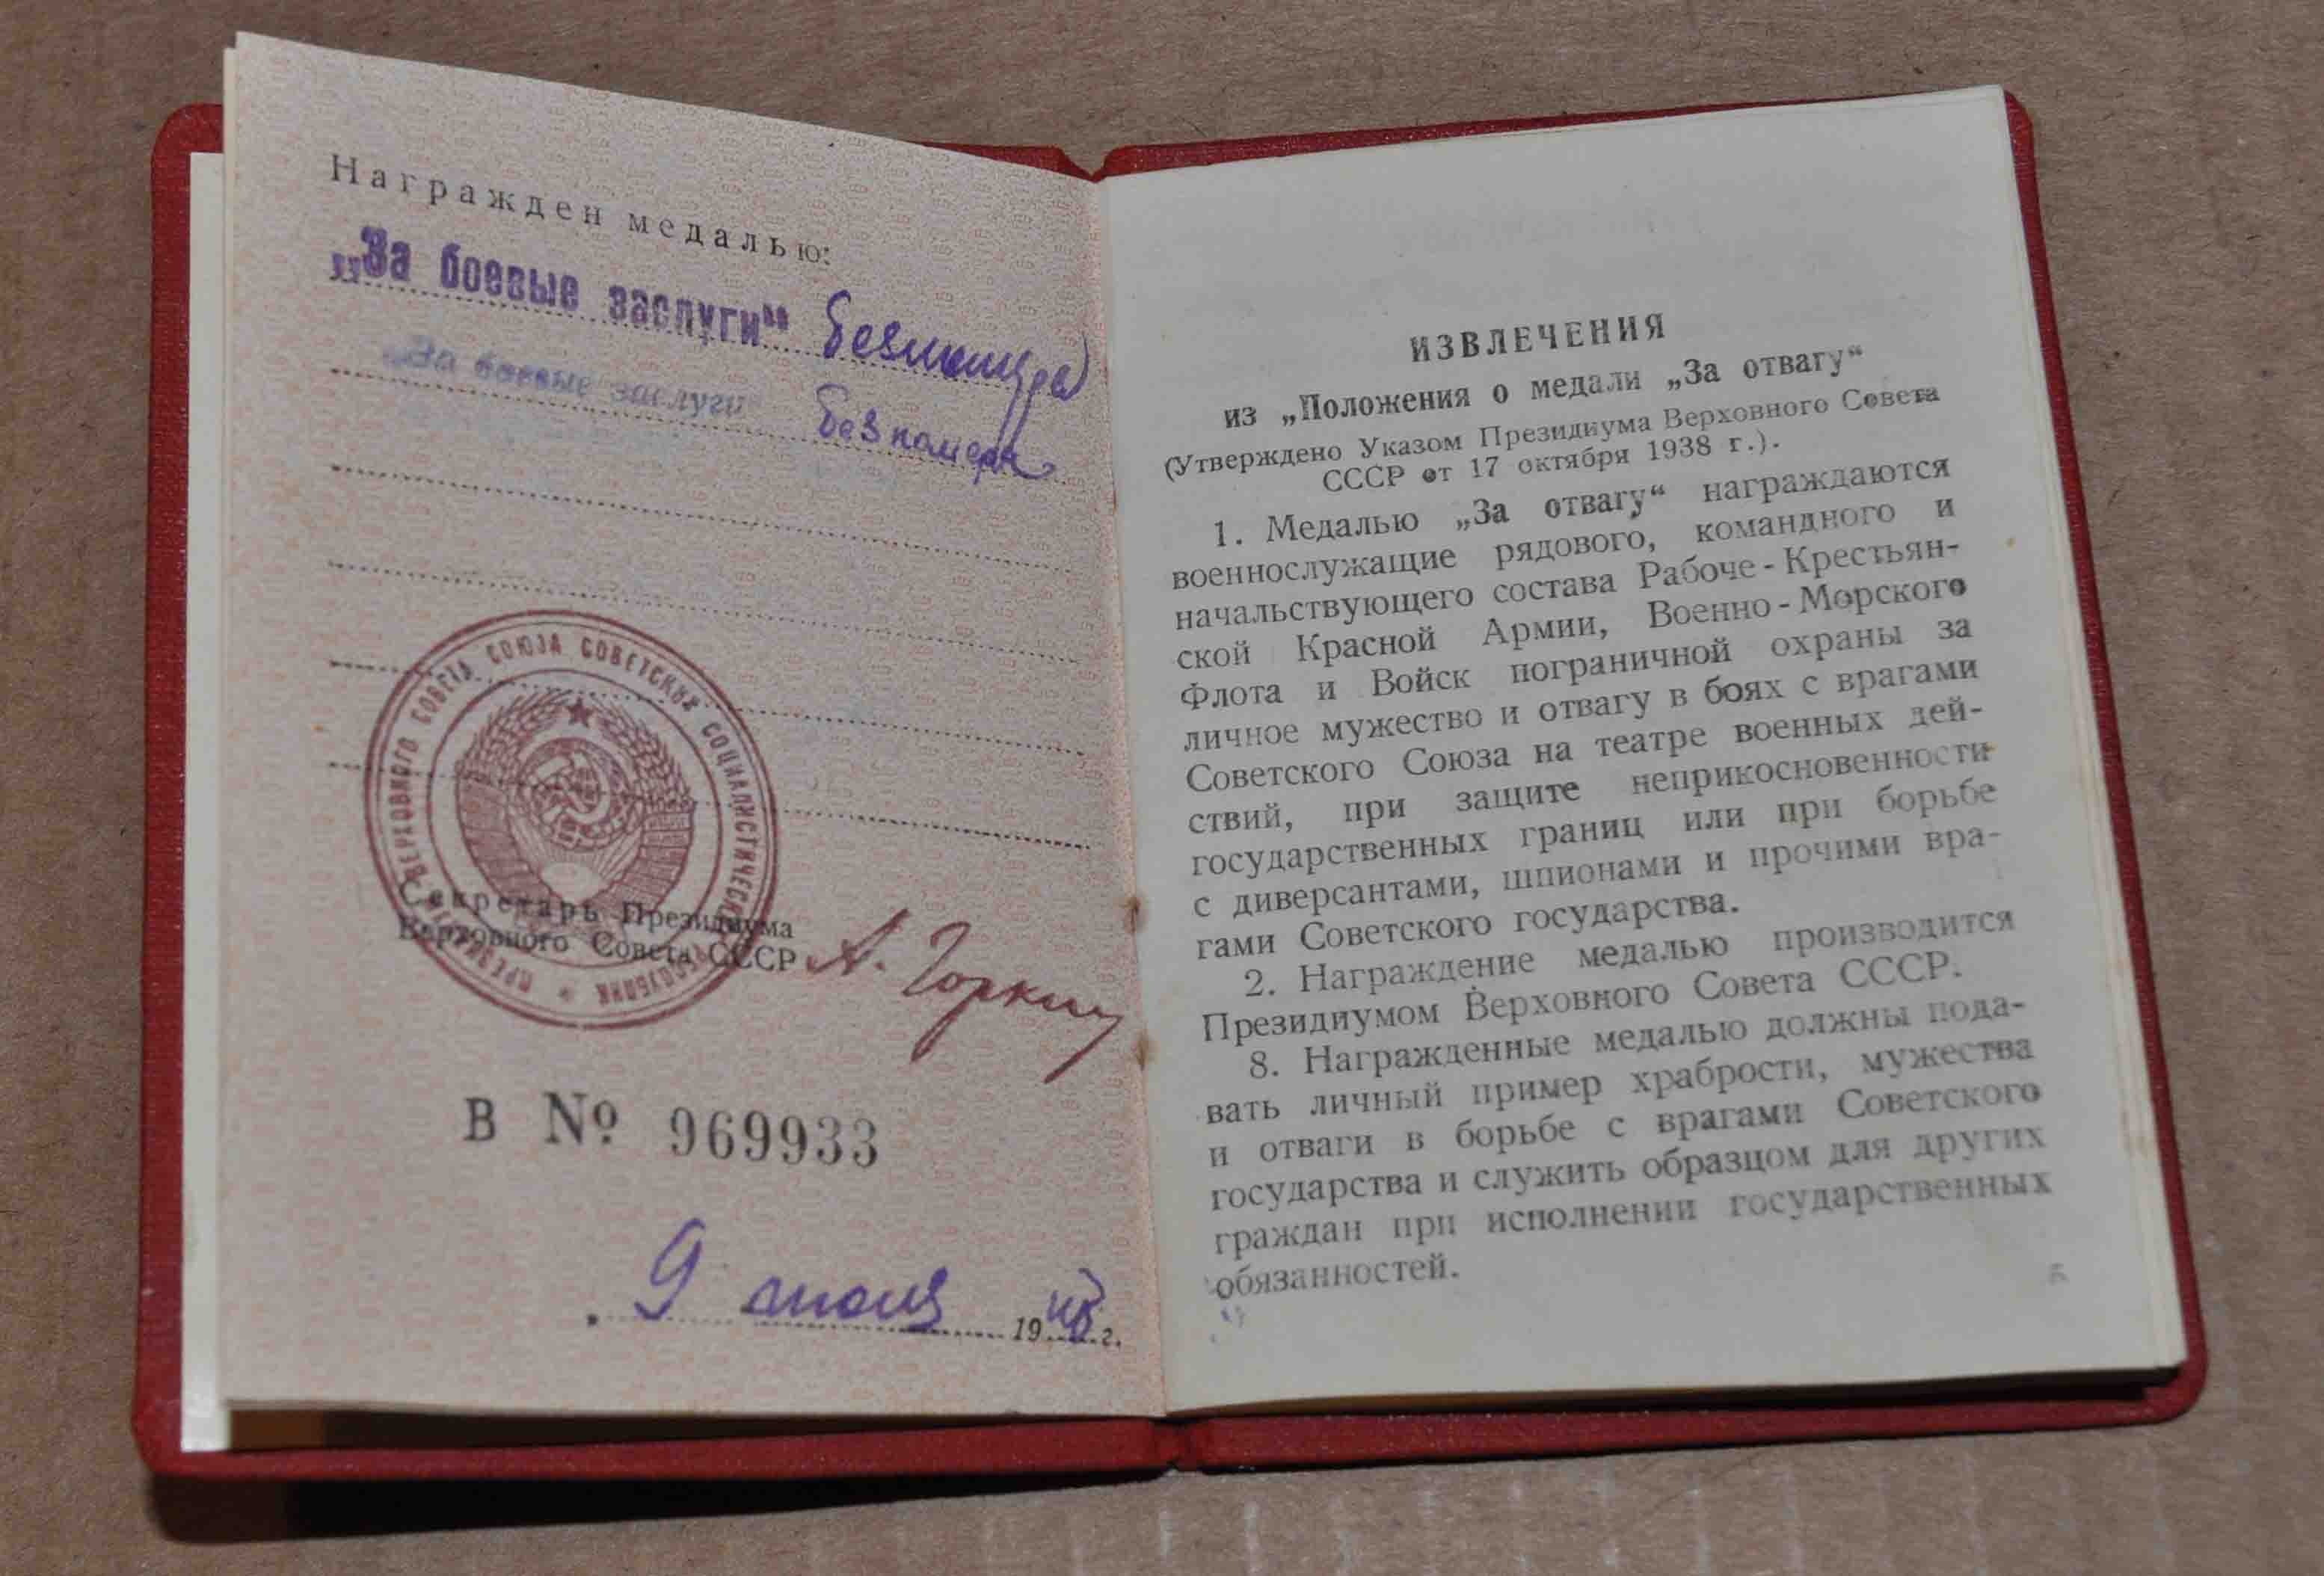 Награжден медалью:
„За боевые заслуги“ без номера
„За боевые заслуги“ без номера
ПРЕЗИДИУМ ВЕРХОВНОГО СОВЕТА СОЮЗА СОВЕТСКИХ СОЦИАЛИСТИЧЕСКИХ РЕСПУБЛИК
Секретарь Президиума
Верховного Совета СССР А. Горкин
В № 969933
9 июля 1948 г.
ИЗВЛЕЧЕНИЯ
из „Положения о медали „За отвагу“
(Утверждено Указом Президиума Верховного Совета
СССР от 17 октября 1938 г.).
1. Медалью „За отвагу“ награждаются
военнослужащие рядового, командного и
начальствующего состава Рабоче-Крестьян-
ской Красной Армии, Военно-Морского
Флота и Войск пограничной охраны за
личное мужество и отвагу в боях с врагами
Советского Союза на театре военных дей-
ствий, при защите неприкосновенности
государственных границ или при борьбе
с диверсантами, шпионами и прочими вра-
гами Советского государства.
2. Награждение медалью производится
Президиумом Верховного Совета СССР.
8. Награжденные медалью должны пода-
вать личный пример храбрости, мужества
и отваги в борьбе с врагами Советского
государства и служить образцом для других
граждан при исполнении государственных
обязанностей.
5